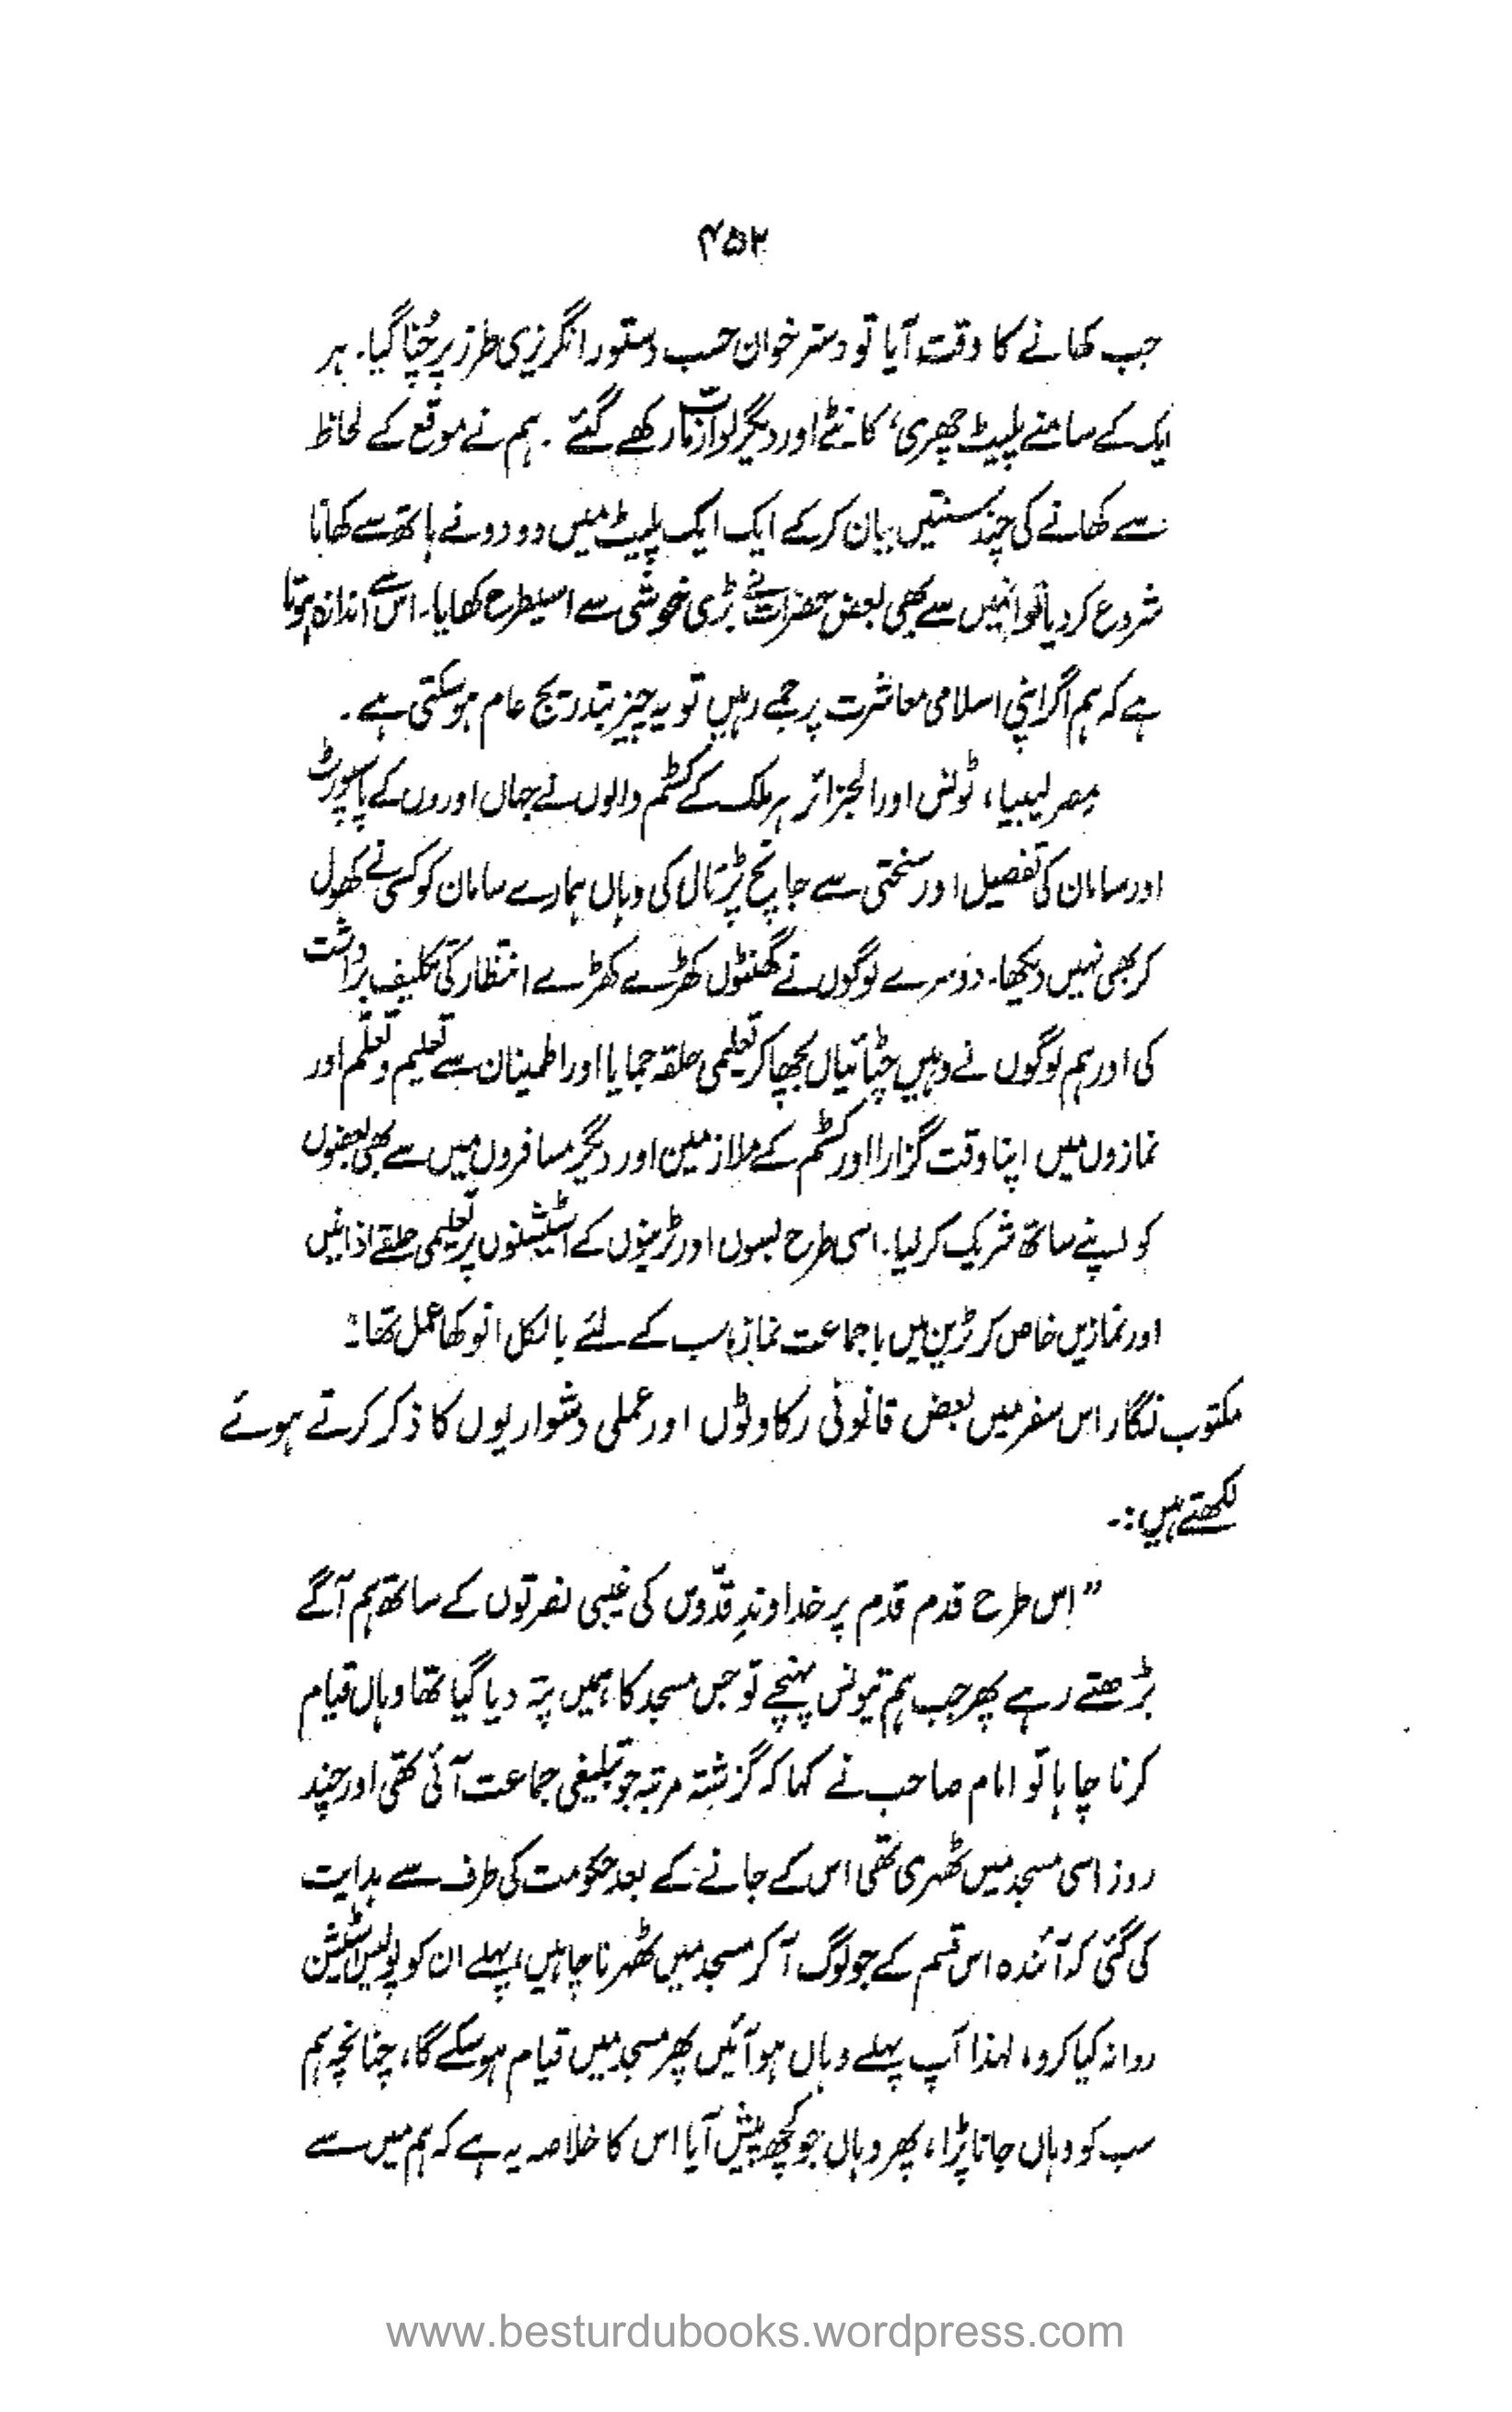 ۴۵۲
جب کھانے کا وقت آیا تو دسترخوان حسب دستور انگریزی طرز پر چُنا گیا۔ ہر
ایک کے سامنے پلیٹ چھری، کانٹے اور دیگر لوازمات رکھے گئے۔ ہم نے موقع کے لحاظ
سے کھانے کی چند سنتیں بیان کرکے ایک ایک پلیٹ میں دو دو نے ہاتھ سے کھانا
شروع کردیا تو انہیں سے بھی بعض حضرات نے بڑی خوشی سے اسیطرح کھایا۔ اس سے اندازہ ہوتا
ہے کہ ہم اگر اپنی اسلامی معاشرت پر جمے رہیں تو یہ چیز بتدریج عام ہوسکتی ہے۔
مصر لیبیا، ٹونس اور الجزائر ہر ملک کے کسٹم والوں نے جہاں اوروں کے پاسپورٹ
اور سامان کی تفصیل اور سختی سے جانچ پڑتال کی وہاں ہمارے سامان کو کسی نے کھول
کر بھی نہیں دیکھا۔ دوسرے لوگوں نے گھنٹوں کھڑے کھڑے انتظار کی تکلیف برداشت
کی اور ہم لوگوں نے وہیں چٹائیاں بچھا کر تعلیمی حلقہ جمایا اور اطمینان سے تعلیم و تعلّم اور
نمازوں میں اپنا وقت گزارا اور کسٹم کے ملازمین اور دیگر مسافروں میں سے بھی بعضوں
کو اپنے ساتھ شریک کرلیا۔ اسی طرح بسوں اور ٹرینوں کے اسٹیشنوں پر تعلیمی حلقے اذانیں
اور نمازیں خاص کر ٹرین میں باجماعت نماز، سب کے لئے بالکل انوکھا عمل تھا:
مکتوب نگار اس سفر میں بعض قانونی رکاوٹوں اور عملی دشواریوں کا ذکر کرتے ہوئے
لکھتے ہیں:۔
”اِس طرح قدم قدم پر خداوندِ قدّوس کی غیبی نصرتوں کے ساتھ ہم آگے
بڑھتے رہے پھر جب ہم تیونس پہنچے تو جس مسجد کا ہمیں پتہ دیا گیا تھا وہاں قیام
کرنا چاہا تو امام صاحب نے کہا کہ گزشتہ مرتبہ جو تبلیغی جماعت آئی تھی اور چند
روز اسی مسجد میں ٹھہری تھی اس کے جانے کے بعد حکومت کی طرف سے ہدایت
کی گئی کہ آئندہ اس قسم کے جو لوگ آکر مسجد میں ٹھہرنا چاہیں، پہلے ان کو پولیس اسٹیشن
روانہ کیا کرو، لہٰذا آپ پہلے وہاں ہو آئیں پھر مسجد میں قیام ہوسکے گا، چنانچہ ہم
سب کو وہاں جانا پڑا، پھر وہاں جو کچھ پیش آیا اس کا خلاصہ یہ ہے کہ ہم میں سے
www.besturdubooks.wordpress.com